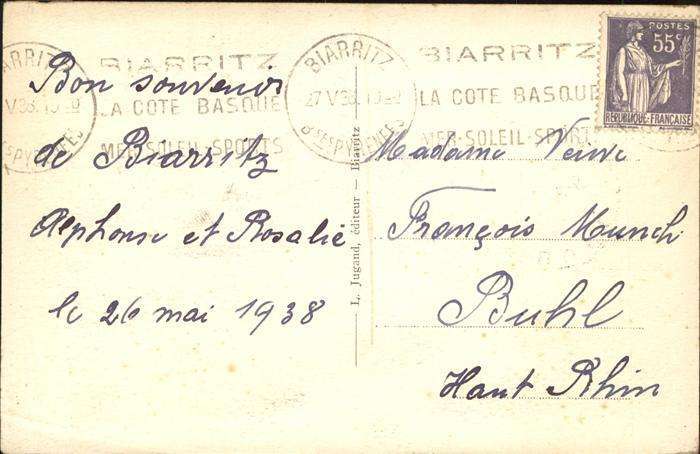 BIARRITZ
LA COTE BASQUE
MER-SOLEIL-SPORTS
BIARRITZ
27 V 38
Bses PYRENEES
BIARRITZ
LA COTE BASQUE
MER-SOLEIL-SPORTS
POSTES
55c
REPUBLIQUE-FRANCAISE
Bon souvenir
de Biarritz
Alphonse et Rosalie
le 26 mai 1938
L. Jugand, éditeur — Biarritz
Madame Veuve
François Munch
Buhl
Haut Rhin